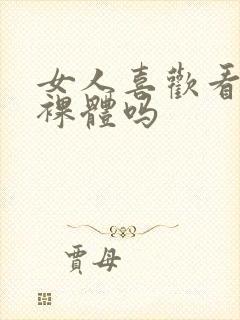 女人喜歡看
裸體吗
賈母